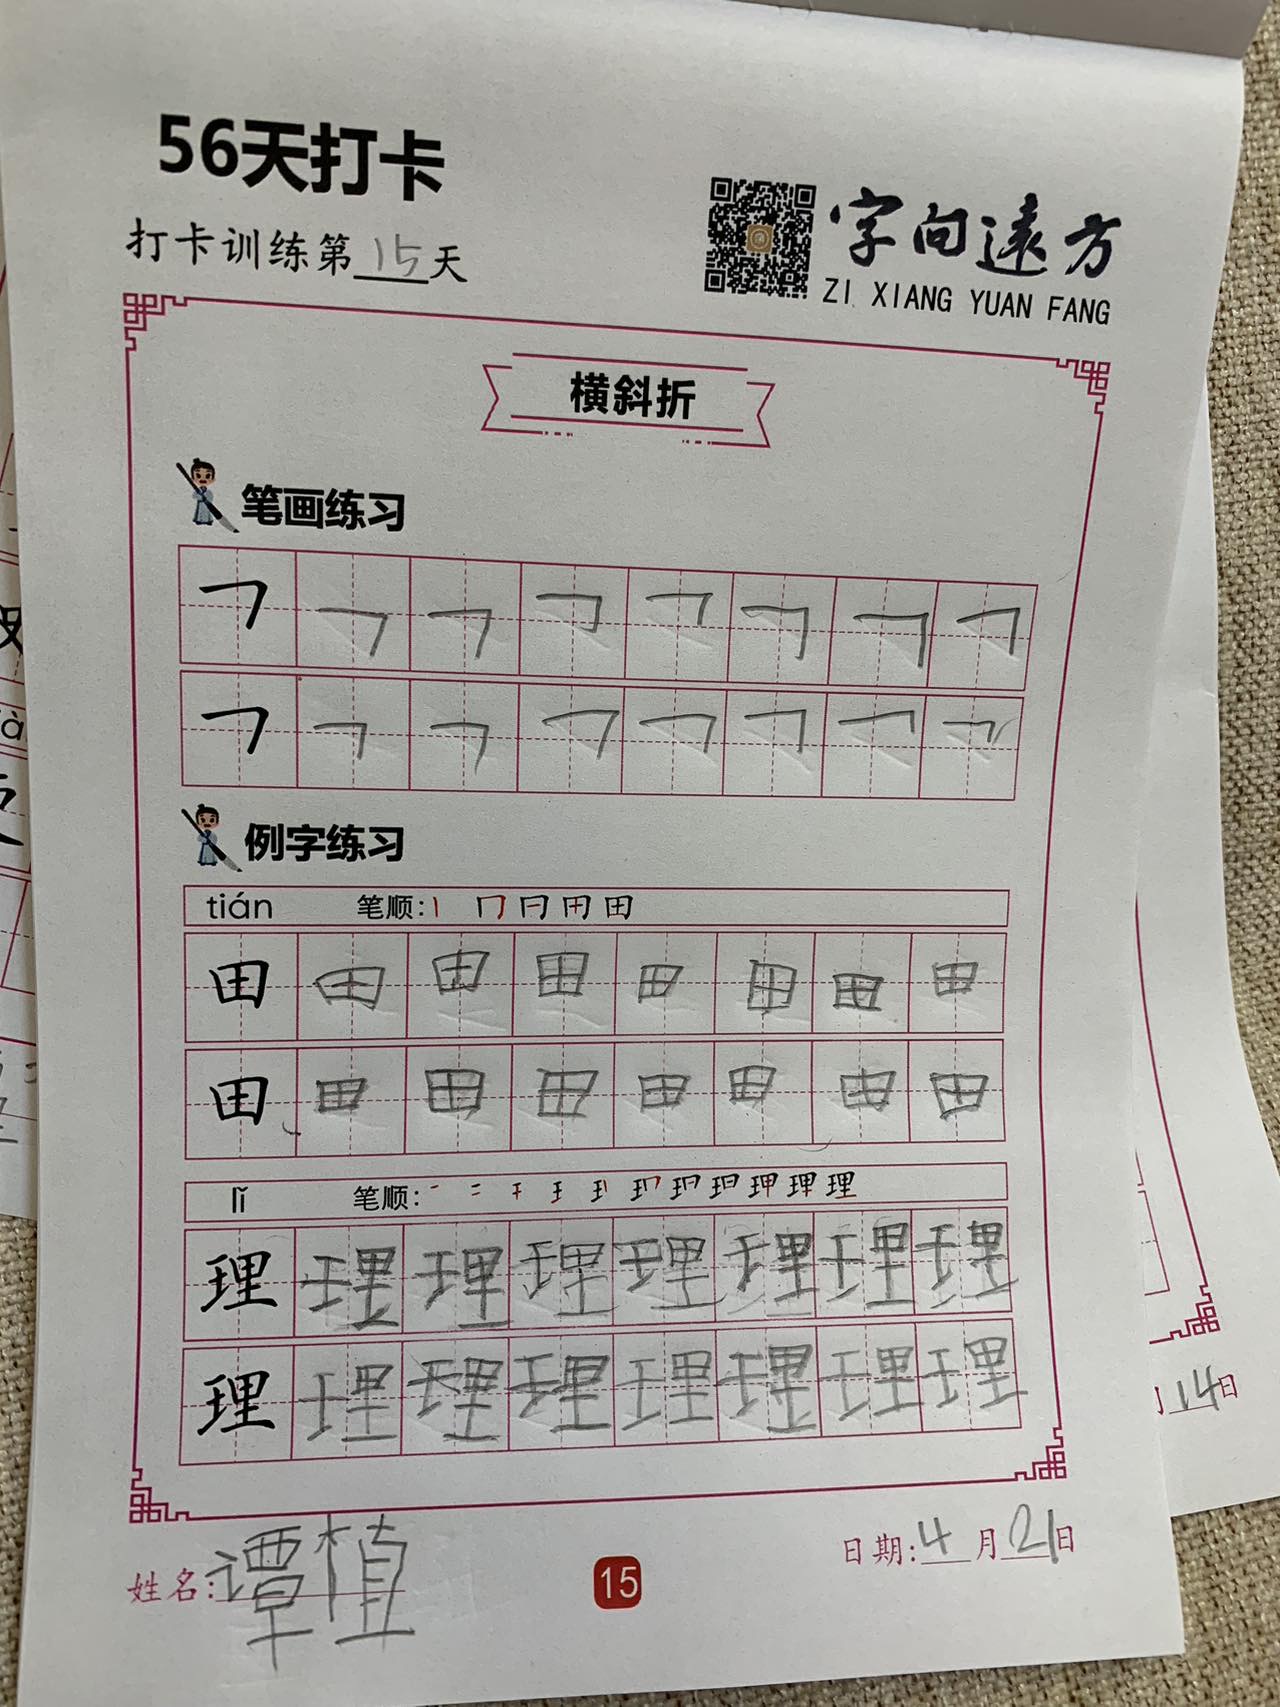 56天打卡
打卡训练第15天
字向远方
ZI XIANG YUAN FANG
横斜折
笔画练习
例字练习
tián 笔顺:
田 田 田 田 田 田 田 田
田 田 田 田 田 田 田 田
lǐ 笔顺:
理 理 理 理 理 理 理 理
理 理 理 理 理 理 理 理
14日
姓名:谭植
15
日期:4月21日